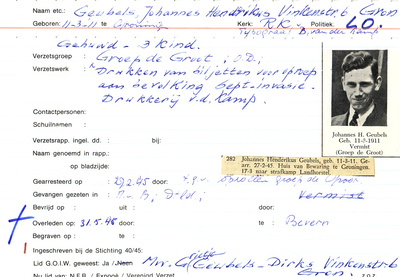 Naam etc.: Geubels Johannes Hendrikus Vinkenstr. 6 Gron
Geboren: 11-3-11 te Groning Kerk: R.K. Politiek: L.O.
Typograaf D. van der Kamp
Gehuwd - 3 kind.
Verzetsgroep : Groep de Groot, O.D.,
Verzetswerk : Drukken van biljetten voor oproep
aan bevolking Sept-invasie.
Drukkerij v.d. Kamp.
Contactpersonen:
Schuilnaam :
Verzetsrapp. ingel. dd. : bij:
Naam genoemd in rapp.:
op bladzijde:
Johannes H. Geubels
Geb. 11-2-1911
Vermist
(Groep de Groot)
282 Johannes Henderikus Geubels, geb. 11-3-11, Ge-
arr. 27-2-45. Huis van Bewaring te Groningen.
17-3 naar strafkamp Landhorstel.
Gearresteerd op : 27.2.45 door: groep de Groot
Gevangen gezeten in : Vermist
Bevrijd op : uit: door:
Overleden op: 31.5.45 door: te: Bevern
Begraven op : te:
Ingeschreven bij de Stichting 40/45:
Lid G.O.I.W. geweest: Ja/Neen Mw. Geubels-Dirks Vinkenstr. 6
Nu lid van: N.F.R. / Exposé / Verenigd Verzet Gron.